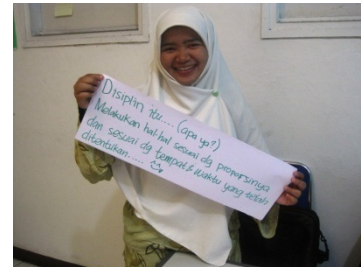 Disiplin itu.... (apa ya?)
Melakukan hal-hal sesuai dg proporsinya
dan sesuai dg tempat & waktu yang telah
ditentukan.....